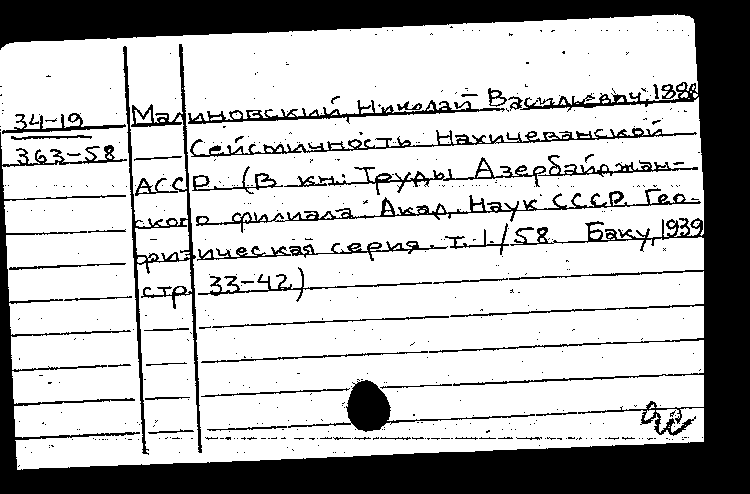 34-19 Малиновский, Николай Васильевич, 1888
363-58 Сейсмичность Нахичеванской
АССР. (В кн: Труды Азербайджан-
ского филиала Акад. Наук СССР. Гео-
физическая серия. т. 1/58. Баку, 1939
стр. 33-42)